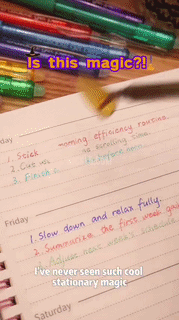 Is this magic?!
day
1. Stick morning efficiency routine.
2. Cut
3. Finish
Friday
1. Slow down and relax fully.
2. Summarize the first week
3. Adjust next week's schedule
I've never seen such cool
stationary magic
Saturday